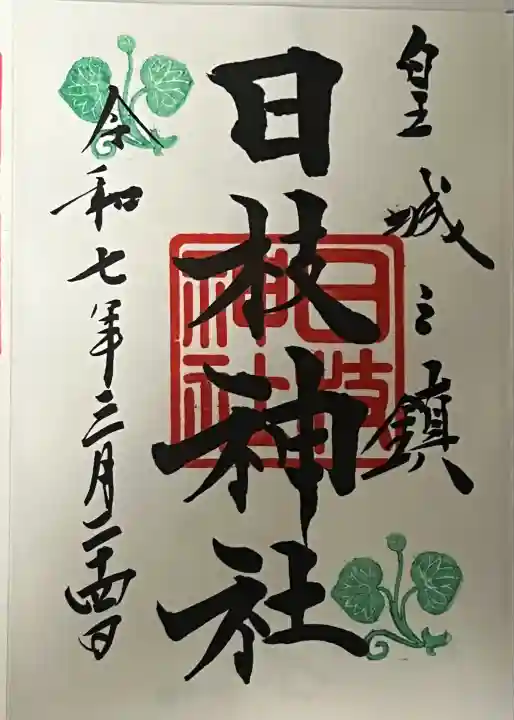 皇城之鎮
日枝神社
日枝
神社
令和七年三月二十四日